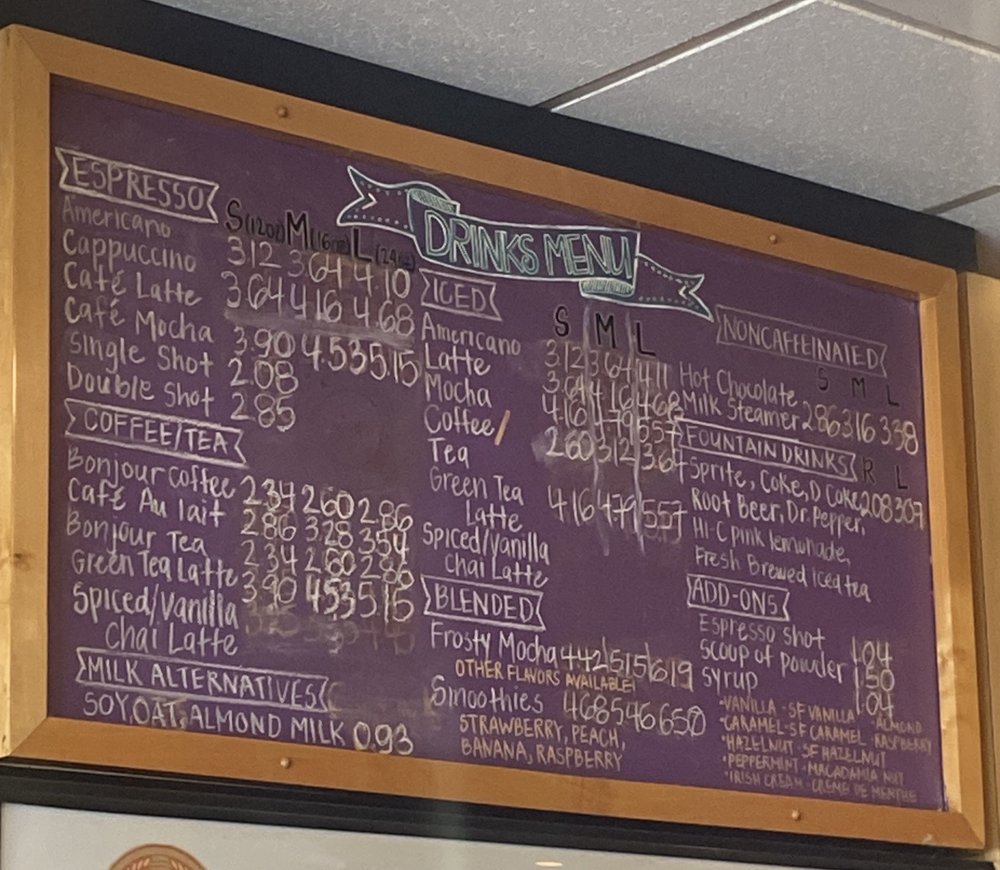 DRINKS MENU
ESPRESSO
S(12oz) M(16oz) L(24oz)
Americano 3.12 3.64 4.10
Cappuccino 3.64 4.16 4.68
Café Latte
Café Mocha 3.90 4.53 5.15
Single Shot 2.08
Double Shot 2.85
COFFEE/TEA
Bonjour coffee 2.34 2.60 2.86
Café Au lait 2.86 3.28 3.54
Bonjour Tea 2.34 2.60 2.86
Green Tea Latte 3.90 4.53 5.15
Spiced/Vanilla
Chai Latte
MILK ALTERNATIVES
SOY, OAT, ALMOND MILK 0.93
ICED
S M L
Americano 3.12 3.64 4.11
Latte 3.64 4.16 4.68
Mocha 4.16 4.79 5.57
Coffee/ 2.60 3.12 3.64
Tea
Green Tea
Latte 4.16 4.79 5.57
Spiced/Vanilla
Chai Latte
BLENDED
Frosty Mocha 4.42 5.15 6.19
OTHER FLAVORS AVAILABLE!
Smoothies 4.68 5.46 6.50
STRAWBERRY, PEACH,
BANANA, RASPBERRY
NONCAFFEINATED
S M L
Hot Chocolate
Milk Steamer 2.86 3.16 3.38
FOUNTAIN DRINKS R L
Sprite, Coke, D Coke 2.08 3.09
Root Beer, Dr. Pepper,
HI-C pink lemonade,
Fresh Brewed iced tea
ADD-ONS
Espresso shot 1.04
scoup of powder 1.50
syrup 1.04
•VANILLA •SF VANILLA •ALMOND
•CARAMEL •SF CARAMEL •RASPBERRY
•HAZELNUT •SF HAZELNUT
•PEPPERMINT •MACADAMIA NUT
•IRISH CREAM •CREME DE MENTHE